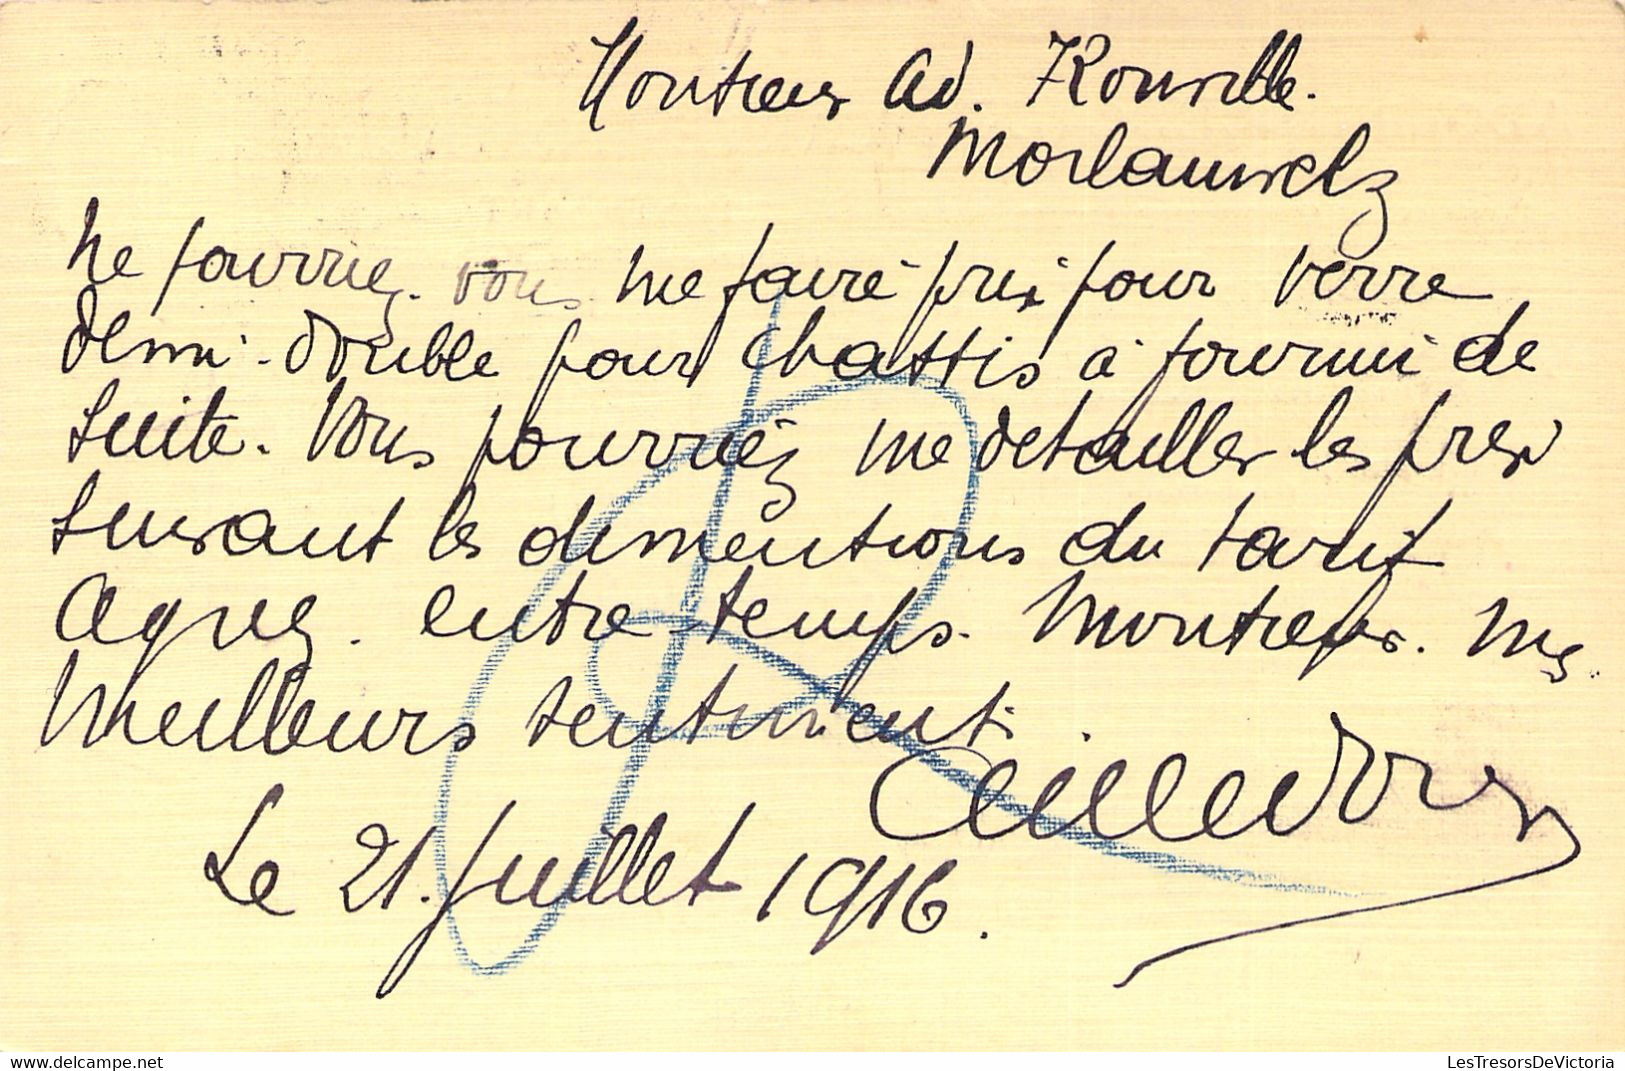 Monsieur Ad.
Morlanwelz
Ne pourriez-vous me faire prix pour verre
demi-double pour chassis à fournir de
suite. Vous pourriez me detailler les prix
suivant les dimentions du tarif
Agreez. entre-temps. Monsieur. mes
meilleurs sentiment.
Le 21. Juillet 1916.
LesTresorsDeVictoria